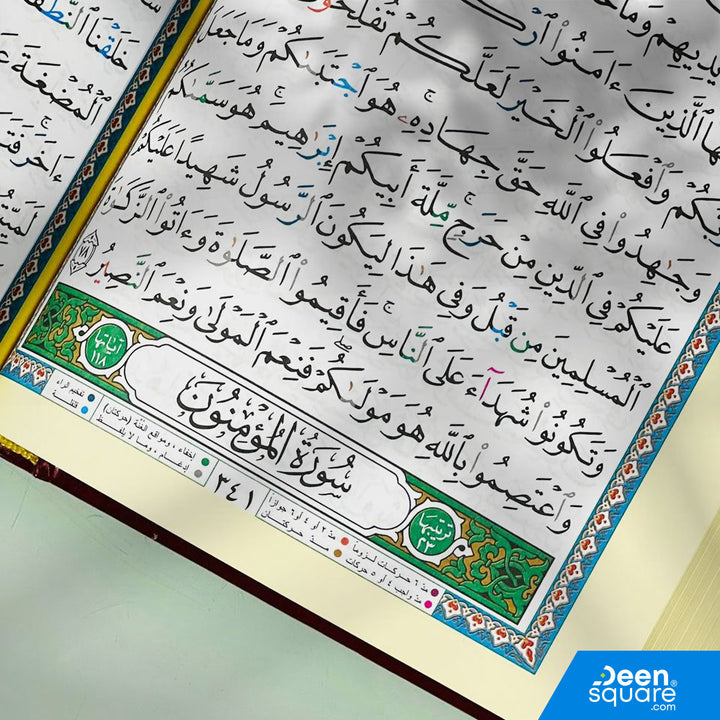 ءَامَنُوا۟ ٱرْ
ٱلَّذِينَ
وَٱفْعَلُوا۟ ٱلْخَيْرَ لَعَلَّكُمْ تُفْلِحُو
وَجَـٰهِدُوا۟ فِى ٱللَّهِ حَقَّ جِهَادِهِۦ ۚ هُوَ ٱجْتَبَىٰكُمْ وَمَا جَعَلَ
عَلَيْكُمْ فِى ٱلدِّينِ مِنْ حَرَجٍ ۚ مِّلَّةَ أَبِيكُمْ إِبْرَٰهِيمَ ۚ هُوَ سَمَّىٰكُمُ
ٱلْمُسْلِمِينَ مِن قَبْلُ وَفِى هَـٰذَا لِيَكُونَ ٱلرَّسُولُ شَهِيدًا عَلَيْكُمْ
وَتَكُونُوا۟ شُهَدَآءَ عَلَى ٱلنَّاسِ ۚ فَأَقِيمُوا۟ ٱلصَّلَوٰةَ وَءَاتُوا۟ ٱلزَّكَوٰةَ
وَٱعْتَصِمُوا۟ بِٱللَّهِ هُوَ مَوْلَىٰكُمْ ۖ فَنِعْمَ ٱلْمَوْلَىٰ وَنِعْمَ ٱلنَّصِيرُ ٧٨
ترتيبها ٢٣
سُورَةُ الْمُؤْمِنُونَ
آياتها ١١٨
مدّ ٦ حركات لزوماً
مدّ ٢ أو ٤ أو ٦ جوازاً
مدّ واجب ٤ أو ٥ حركات
مدّ حركتـان
٣٤١
إخفاء، ومواقع الغُنَّة (حركتان)
إدغام، وما لا يُلفَظ
تفخيم الراء
قلقلة
خَلَقْنَا ٱلنُّطْفَ
ٱلْمُضْغَةَ
ءَاخَرَ
Deen
square
.com